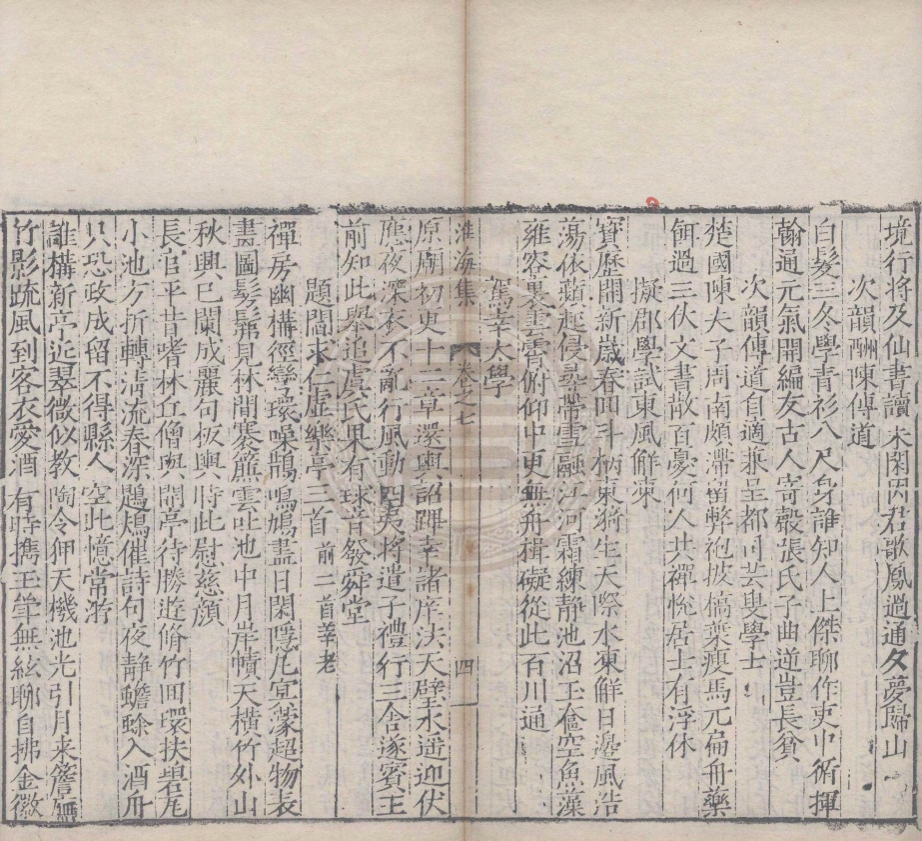 境行將及仙書讀未閑因君歌鳳過通夕夢歸山
次韻酬陳傳道
白髮三冬學青衫八尺身誰知人上傑聊作吏中循揮
翰通元氣開編友古人寄聲張氏子曲逆豈長貧
次韻傳道自適兼呈都司芸叟學士
楚國陳夫子周南頗滯留弊袍披槁葉瘦馬兀扁舟藥
餌過三伏文書散百憂何人共禪悅居士有浮休
擬郡學試東風解凍
寶曆開新歲春回斗柄東游生天際水凍解日邊風浩
蕩依蘋起侵尋帶雪融江河霜練靜池沼玉奩空魚藻
雍容裏雲霄俯仰中更無舟楫礙從此百川通
駕幸太學
原廟初更十二章還輿詔蹕幸諸庠法天璧水遥迎伏
應夜深衣不亂行風動四夷將遣子禮行三舍遂賓王
前知此舉追虞氏果有球音發舜堂
淮海集 卷之七 四
題閻求仁虛樂亭三首 前二首莘老
禪房幽構徑巒環噪鵲鳴鳩盡日閑隱几冥濛超物表
畫圖髣髴見林間褰簾雲吐池中月岸幘天橫竹外山
秋興已闌成麗句板輿時此慰慈顏
長官平昔嗜林丘僧與開亭待勝遊脩竹回環扶碧瓦
小池方折轉清流春深鶗鴂催詩句夜靜蟾蜍入酒舟
只恐政成留不得縣人空此憶常游
誰構新亭近翠微似教陶令狎天機池光引月来簷廡
竹影疏風到客衣愛酒有時攜玉斝無絃聊自拂金徽